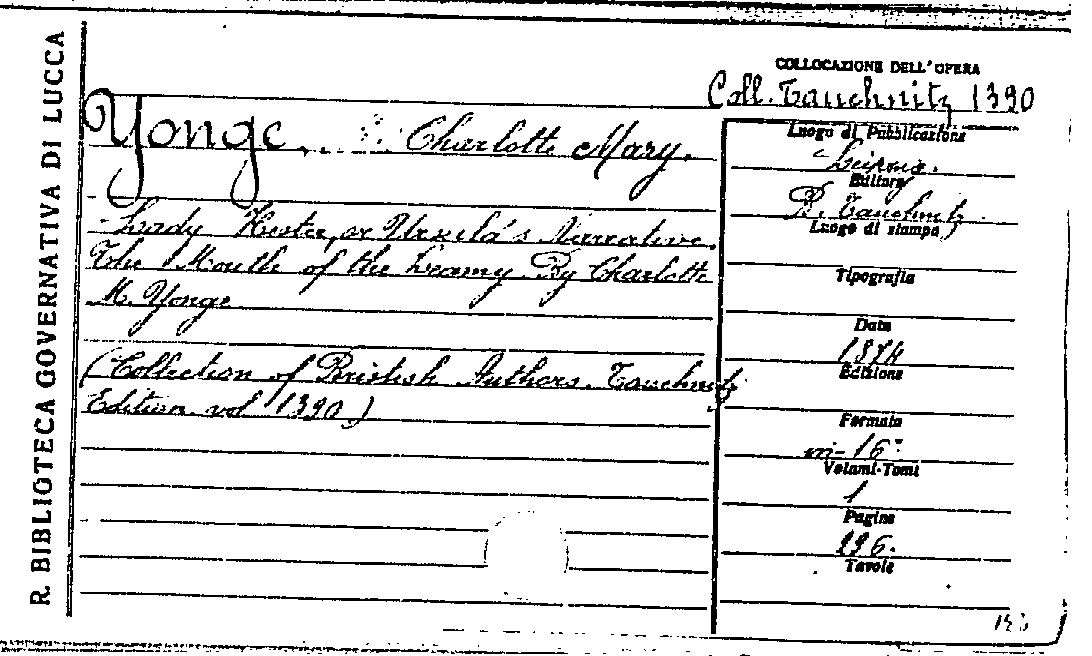 R. BIBLIOTECA GOVERNATIVA DI LUCCA
COLLOCAZIONE DELL'OPERA
Coll. Tauchnitz 1390
Yonge, Charlotte Mary.
Lady Hester, or Ursula's Narrative.
The Mouth of the By Charlotte
M. Yonge
(Collection of British Authors. Tauchnitz
Edition. vol 1390)
Luogo di Pubblicazione
Leipzig.
Editore
B. Tauchnitz
Luogo di stampa
Tipografia
Data
1874
Edizione
Formato
in-16°
Volumi-Tomi
1
Pagine
296.
Tavole